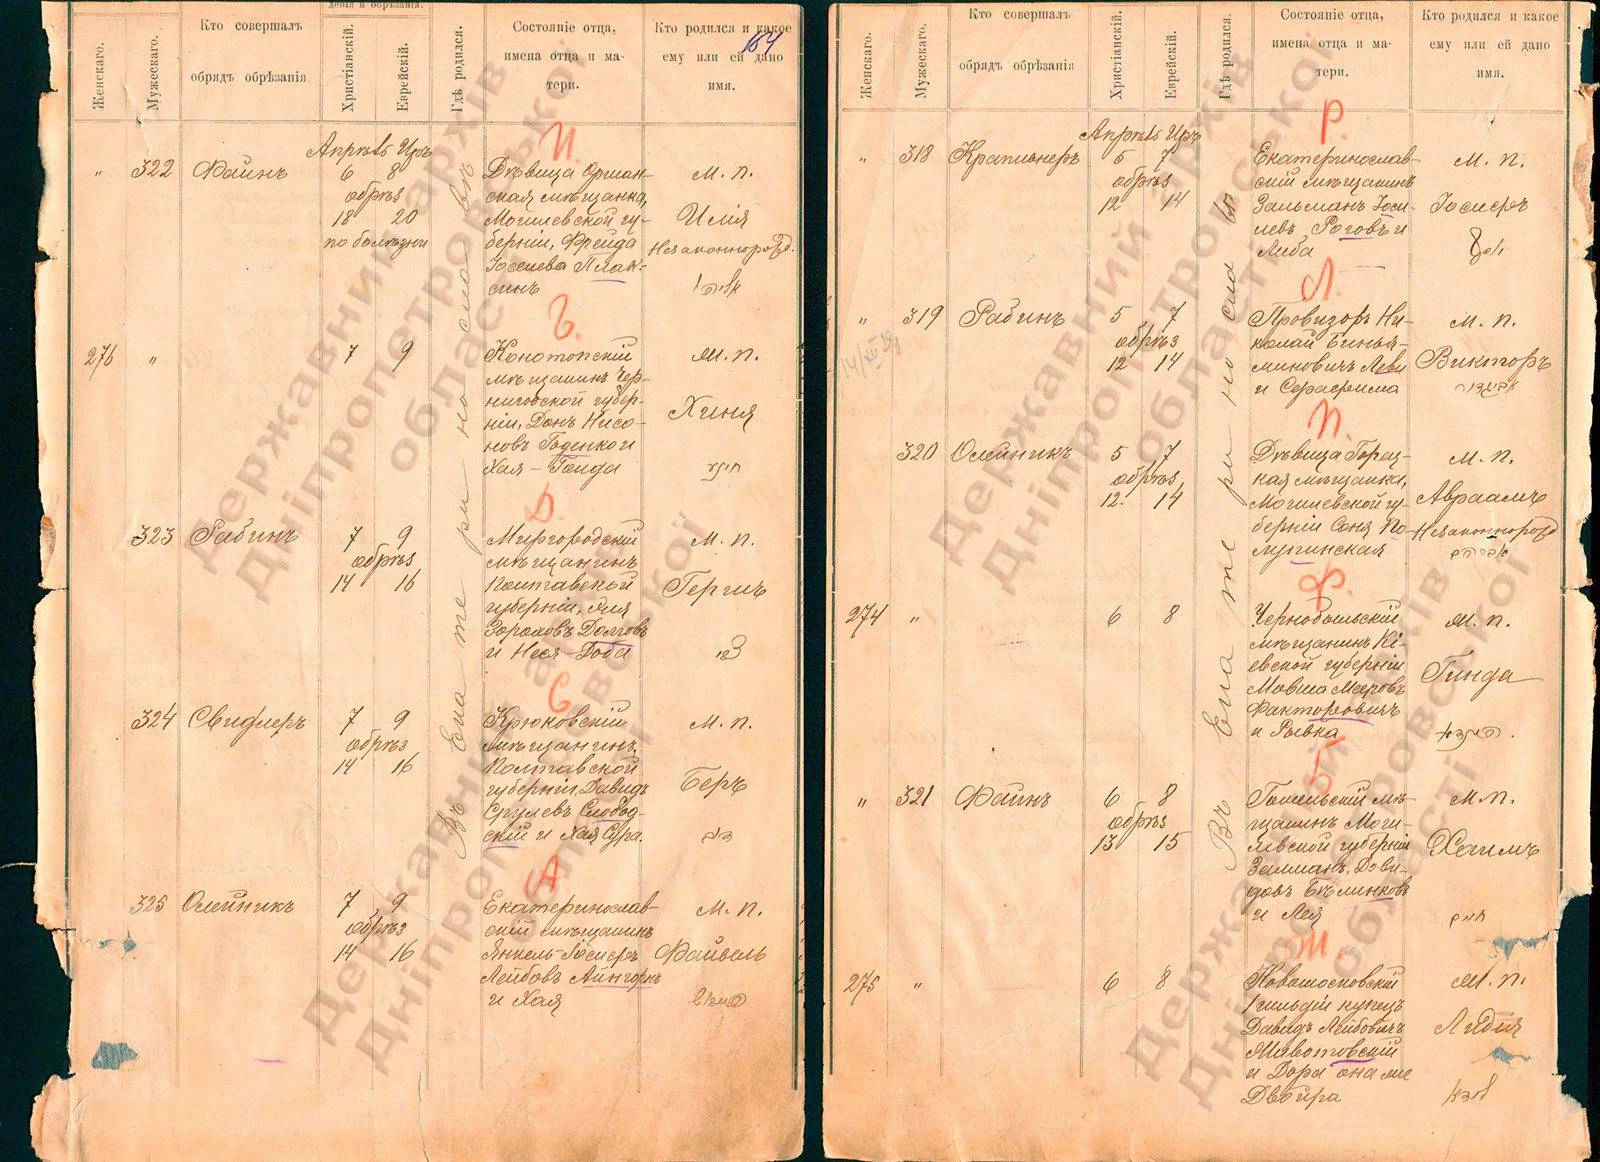 дения и обрѣзанія.
Женскаго.
Мужескаго.
Кто совершалъ
обрядъ обрѣзанія.
Христіанскій.
Еврейскій.
Гдѣ родился.
Состояніе отца,
имена отца и ма-
тери.
Кто родился и какое
ему или ей дано
имя.
154
Въ Ека те ри но сла вѣ
И.
„ 322 Файнъ
Апрѣль Иръ
6 8
обрѣз
18 20
по болѣзни
Дѣвица Оршан-
ская мѣщанка,
Могилевской гу-
берніи, Фрейда
Іосиева Плак-
синъ
м. п.
Илія
Незаконнорожд.
אליהו
276 „
7 9
Конотопскій
мѣщанинъ Чер-
ниговской губер-
ніи, Донъ Нисо-
новъ Годенко и
Хая-Гинда
м. п.
Хиня
D.
323 Рабинъ
7 9
обрѣз
14 16
Миргородскій
мѣщанинъ
Полтавской
губерніи, Яля
Зороховъ Долговъ
и Неся-Доба
м. п.
Гершъ
С.
324 Свидлеръ
7 9
обрѣз
14 16
Крюковскій
мѣщанинъ,
Полтавской
губерніи, Давидъ
Срулевъ Слобод-
скій и Хая Сура.
м. п.
Беръ
А
325 Олейникъ
7 9
обрѣз
14 16
Екатеринослав-
скій мѣщанинъ
Янкель-Іосифъ
Лейбовъ Айнгорнъ
и Хая
м. п.
Файвель
Женскаго.
Мужескаго.
Кто совершалъ
обрядъ обрѣзанія
Христіанскій.
Еврейскій.
Гдѣ родился.
Состояніе отца,
имена отца и ма-
тери.
Кто родился и какое
ему или ей дано
имя.
Въ Ека те ри но сла вѣ
Р.
„ 318 Крапильнеръ
Апрѣль Иръ
5 7
обрѣз
12 14
Екатеринослав-
скій мѣщанинъ
Зальманъ Іоси-
левъ Роговъ и
Либа
м. п.
Іосифъ
יוסף
Л.
„ 319 Рабинъ
5 7
обрѣз
12 14
Провизоръ Ни-
колай Бинья-
миновичъ Леви
и Серафима
м. п.
Викторъ
אביגדור
П.
320 Олейникъ
5 7
обрѣз
12 14
Дѣвица Горец-
кая мѣщанка,
Могилевской гу-
берніи Соня По-
лупинская
м. п.
Авраамъ
Незаконнорожд
אברהם
Ф.
274 „
6 8
Чернобыльскій
мѣщанинъ Кі-
евской губерніи
Мовша Мееровъ
Факторовичъ
и Рывка
м. п.
Гинда
Б
„ 321 Файнъ
6 8
обрѣз
13 15
Гомельскій мѣ-
щанинъ Моги-
левской губерніи
Залманъ, Дови-
довъ Бѣлинковъ
и Лея
м. п.
Хаимъ
חיים
Ж.
275 „
6 8
Новомосковскій
1 гильдіи купецъ
Давидъ Лейбовичъ
Животовскій
и Дора она же
Двойра
м. п.
Лидія
Державний архів
Дніпропетровської
області
Державний архів
Дніпропетровської
області